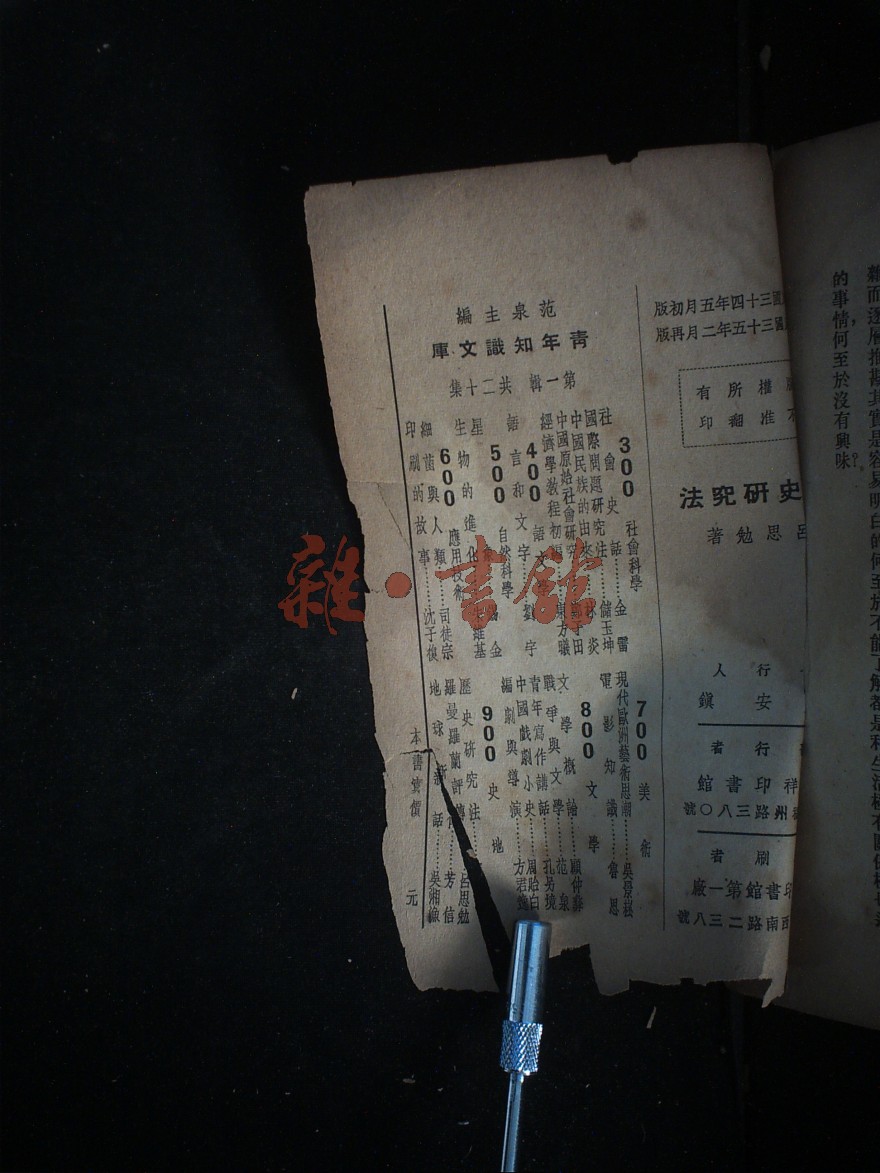 雜而逐層推勘其實是容易明白的何至於不能了解都是和生活極有關係
的事情，何至於沒有興味？
國三十四年五月初版
國三十五年二月再版
權所有
不准翻印
史研究法
呂思勉著
行人
安鎮
行者
祥印書館
州路三八〇號
刷者
印書館第一廠
西南路二三八號
范泉主編
青年知識文庫
第一輯 共二十集
300 社會科學
社會史話……金
國際問題研究法……儲玉坤
中國民族的由來……林炎
中國原始社會研究
經濟學教程初編……東方曦
400 語文學
語言和文字……劉宇
500 自然科學
星
生物的進化
600 應用技術
細菌與人類……司徒宗
印刷的故事……沈子
700 美術
現代歐洲藝術思潮……吳景崧
電影知識……魯思
800 文學
文學概論……顧仲彝
戰爭與文學……范泉
青年寫作講話……孔另境
中國戲劇小史……周貽白
編劇與導演……方君逸
900 史地
歷史研究法……呂思勉
羅曼羅蘭評傳……芳信
地球新話……吳湘漁
本書實價 元
雜·書館